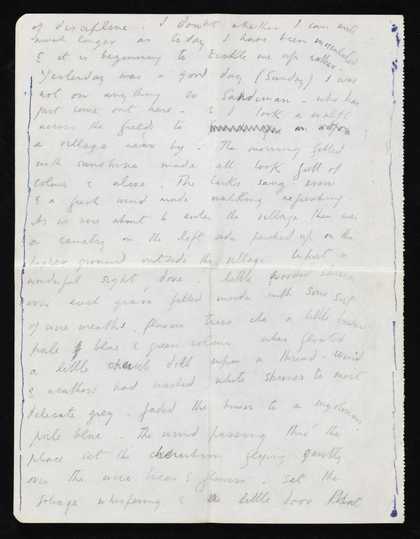 of discipline. I doubt whether I can write
much longer as today I have been inoculated
& it is beginning to tickle me up rather.
Yesterday was a good day (Sunday) I was
not on anything so Sandeman - who has
just come out here - & I took a walk
across the fields to
a village near by. The morning filled
with sunshine made all look full of
colour & alive. The larks sang
& a fresh wind made walking refreshing
As we were about to enter the village there was
a cemetry on the left side perched up on the
ground outside the village. What a
wonderful sight, dove. little wooden
over each grave filled inside with some sort
of wire wreaths, flowers trees etc a little
pale blue & green colour where floated
a little doll upon a thread - wind
& weather had washed white shrines to most
delicate grey. faded the to a mysterious
pale blue. The wind passing thro' the
place set the cherubim flying gently
over the wire trees & flowers. set the
foliage whispering & the little door